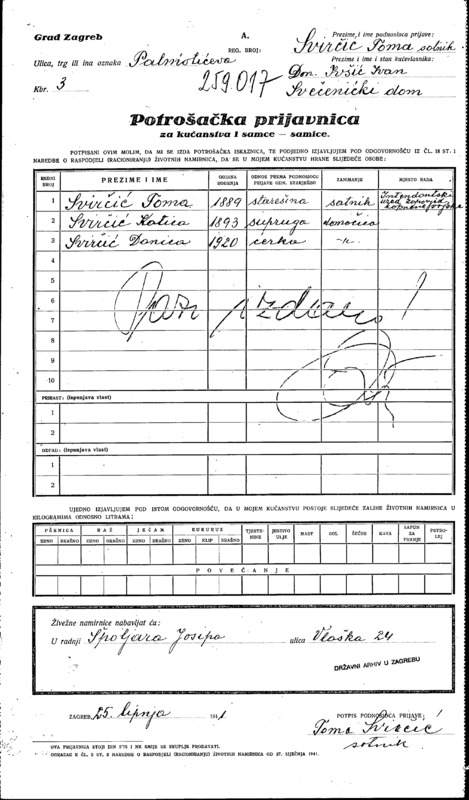 Grad Zagreb
A.
Prezime i ime podnosioca prijave:
Svirčić Toma satnik
Ulica, trg ili ina oznaka Palmotićeva
REG. BROJ:
259.017
Prezime i ime i stan kućevlasnika:
Don. Ivšić Ivan
Kbr. 3
Svećenički dom
Potrošačka prijavnica
za kućanstva i samce — samice.
POTPISANI OVIM MOLIM, DA MI SE IZDA POTROŠAČKA ISKAZNICA, TE PODJEDNO IZJAVLJUJEM POD ODGOVORNOŠĆU IZ ČL. 18 ST. 1
NAREDBE O RASPODJELI (RACIONIRANJU) ŽIVOTNIH NAMIRNICA, DA SE U MOJEM KUĆANSTVU HRANE SLIJEDEĆE OSOBE:
REDNI BROJ PREZIME I IME GODINA ROĐENJA ODNOS PREMA PODNOSIOCU PRIJAVE ODN. STARJEŠINI ZANIMANJE MJESTO RADA
1 Svirčić Toma 1889 starešina satnik Intendantski ured
2 Svirčić Katica 1893 supruga domaćica
3 Svirčić Danica 1920 ćerka -"-
4
5
6
7
8
9
10
PRIRAST: (ispunjava vlast)
1
2
OTPAD: (ispunjava vlast)
1
2
UJEDNO IZJAVLJUJEM POD ISTOM ODGOVORNOŠĆU, DA U MOJEM KUĆANSTVU POSTOJE SLIJEDEĆE ZALIHE ŽIVOTNIH NAMIRNICA U
KILOGRAMIMA ODNOSNO LITRAMA:
PŠENICA RAŽ JEČAM KUKURUZ TJESTENINE JESTIVO ULJE MAST SOL ŠEĆER KAVA SAPUN ZA PRANJE PETROLEJ
ZRNO BRAŠNO ZRNO BRAŠNO ZRNO BRAŠNO ZRNO KLIP BRAŠNO
POVEĆANJE
Živežne namirnice nabavljat ću:
U radnji Špoljara Josipa ulica Vlaška 24
DRŽAVNI ARHIV U ZAGREBU
ZAGREB, 25. lipnja 1941
POTPIS PODNOSIOCA PRIJAVE:
Toma Svirčić
satnik
OVA PRIJAVNICA STOJI DIN 0'75 I NE SMIJE SE SKUPLJE PRODAVATI.
OBRAZAC K ČL. 2 ST. 2 NAREDBE O RASPODJELI (RACIONIRANJU) ŽIVOTNIH NAMIRNICA OD 27. SIJEČNJA 1941.